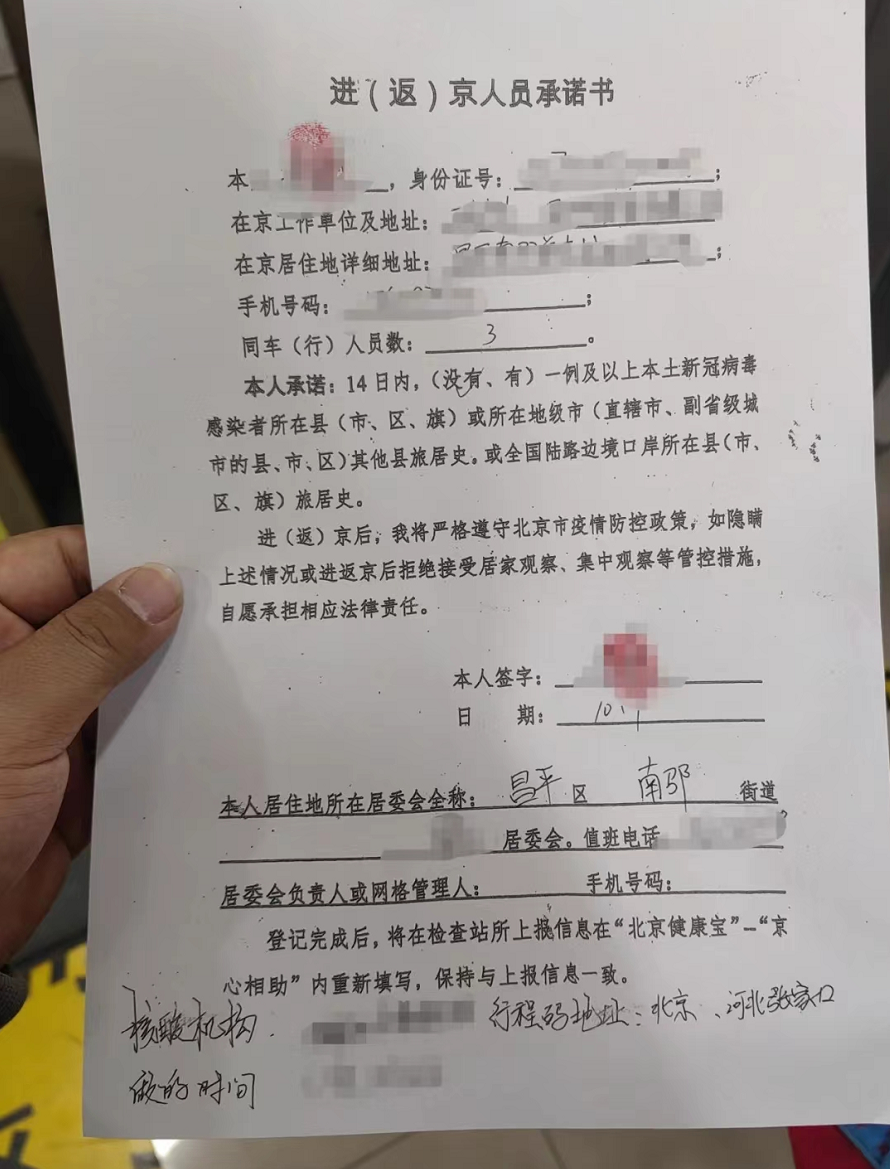 进（返）京人员承诺书
本 ，身份证号： ；
在京工作单位及地址：
在京居住地详细地址： ；
手机号码： ；
同车（行）人员数： 3 。
本人承诺：14日内，（没有、有）一例及以上本土新冠病毒
感染者所在县（市、区、旗）或所在地级市（直辖市、副省级城
市的县、市、区）其他县旅居史。或全国陆路边境口岸所在县（市、
区、旗）旅居史。
进（返）京后，我将严格遵守北京市疫情防控政策，如隐瞒
上述情况或进返京后拒绝接受居家观察、集中观察等管控措施，
自愿承担相应法律责任。
本人签字：
日 期：
本人居住地所在居委会全称： 昌平 区 南邵 街道
居委会。值班电话
居委会负责人或网格管理人： 手机号码：
登记完成后，将在检查站所上报信息在“北京健康宝”—“京
心相助”内重新填写，保持与上报信息一致。
核酸机构 行程码地址：北京、河北张家口
做的时间